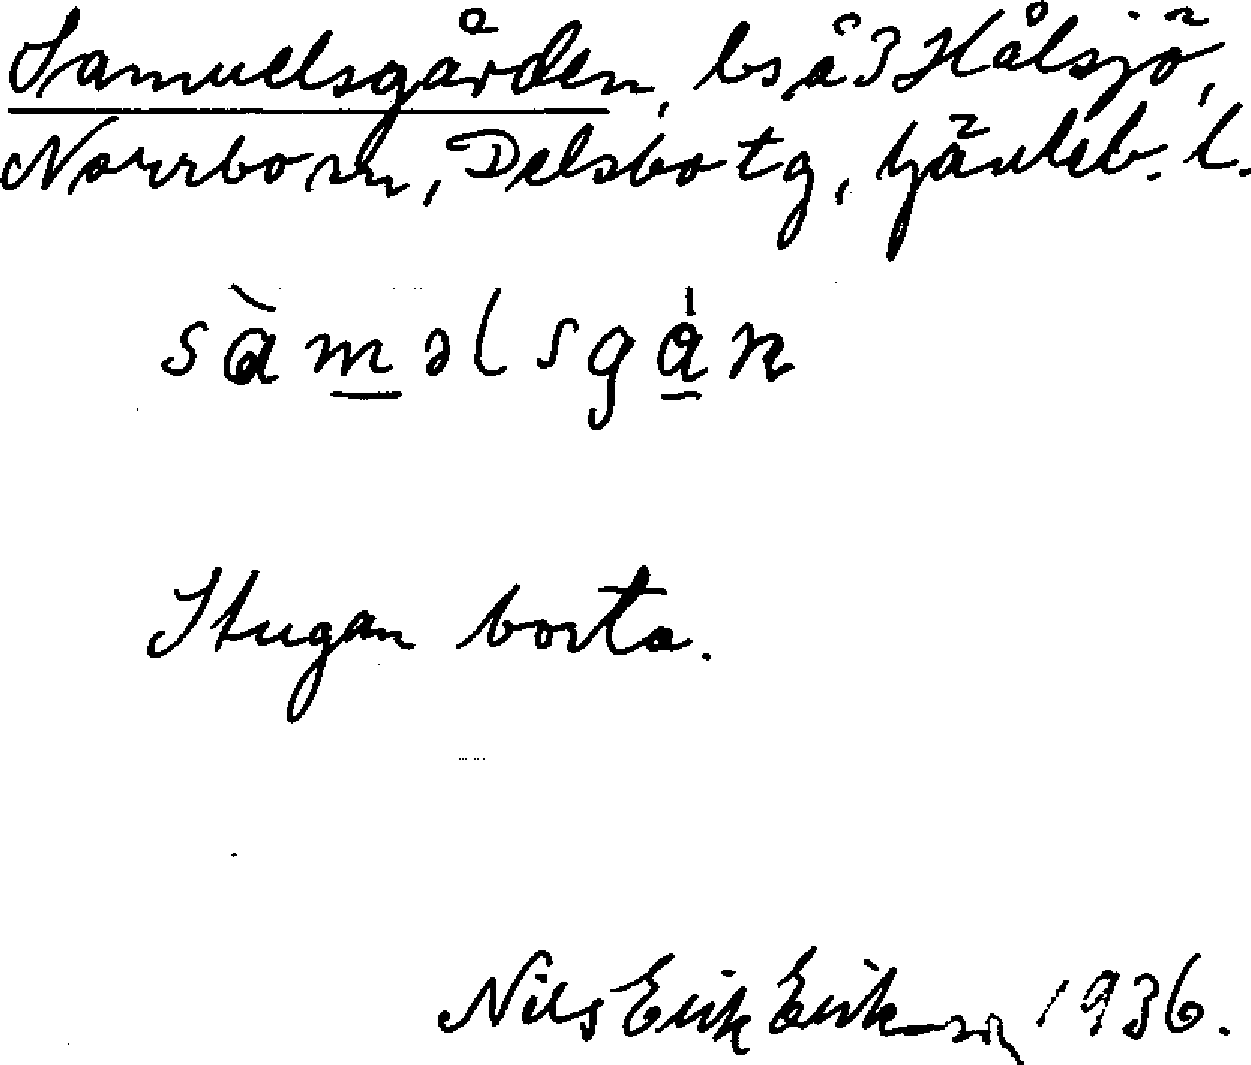 Samuelsgården, bs å 3 Hålsjö,
Norrbo sn, Delsbo tg, Gävleb. l.
sàməlsgán
Stugan borta.
Nils Erik Eriksson 1936.